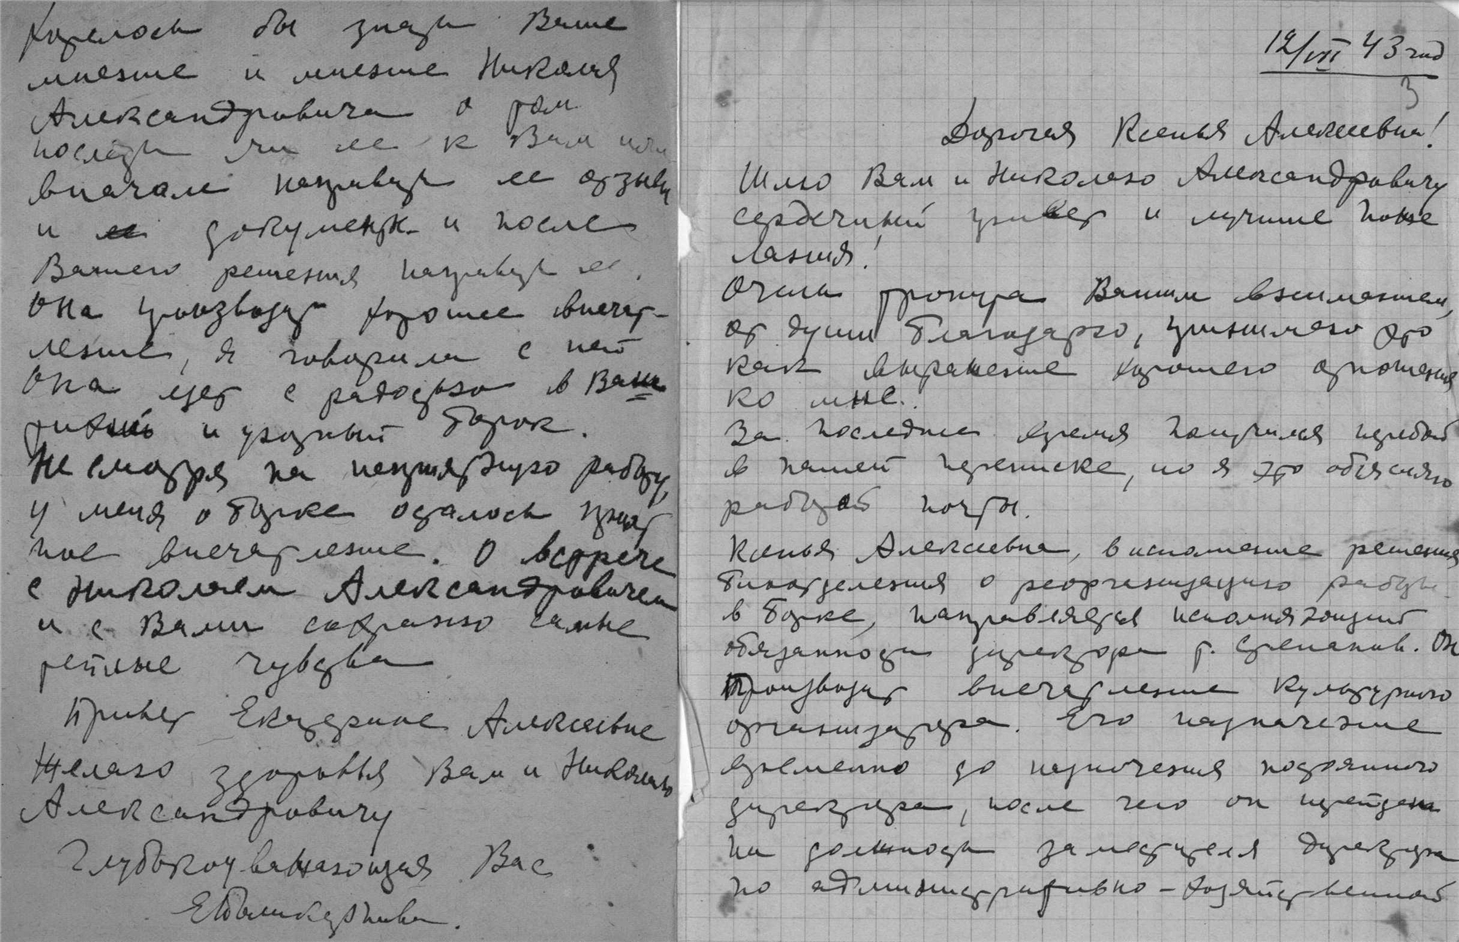 Хотелось бы знать Ваше
мнение и мнение Николая
Александровича о том
послать ли ее к Вам или
вначале направить ее отзывы
и документы и после
Вашего решения направить ее.
Она производит хорошее впечат-
ление, я говорила с ней
Она едет с радостью в Ваш
и уютный Борок.
Несмотря на напряжную работу,
у меня о Борке осталось прият
ное впечатление. О встрече
с Николаем Александровичем
и с Вами сохраняю самые
теплые чувства
Привет Екатерине Алексеевне
Желаю здоровья Вам и Николаю
Александровичу
Глубокоуважающая Вас
12/VII 43 год
3
Дорогая Ксенья Алексеевна!
Шлю Вам и Николаю Александровичу
сердечный привет и лучшие поже
лания!
Очень тронута Вашим вниманием,
от души благодарю, принимаю это
как выражение хорошего отношения
ко мне.
За последнее время получился перебой
в нашей переписке, но я это объясняю
работой почты.
Ксенья Алексеевна, в исполнение решения
биоотделения о реорганизации работы
в Борке, направляется исполняющий
обязанности директора т. Степанов. Он
производит впечатление культурного
организатора. Его назначение
временно до назначения постоянного
директора, после чего он перейдет
на должность заместителя директора
по административно-хозяйственной